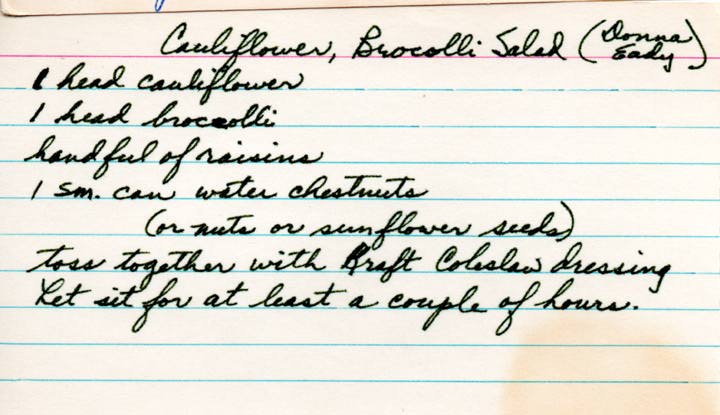 Cauliflower, Brocolli Salad (Donna Eady)
1 head cauliflower
1 head broccolli
handful of raisins
1 sm. can water chestnuts
(or nuts or sunflower seeds)
toss together with Kraft Coleslaw dressing
Let sit for at least a couple of hours.